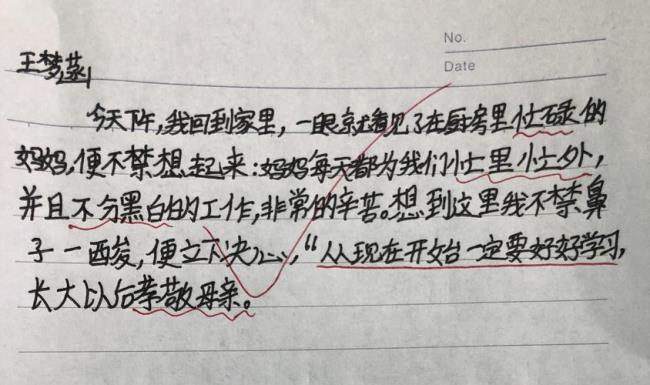 No.
Date
王梦蒸
今天下午,我回到家里,一眼就看见了在厨房里忙碌的
妈妈,便不禁想起来:妈妈每天都为我们忙里忙外,
并且不分黑白的工作,非常的辛苦。想到这里我不禁鼻
子一酸,便立下决心,“从现在开始一定要好好学习,
长大以后孝敬母亲。